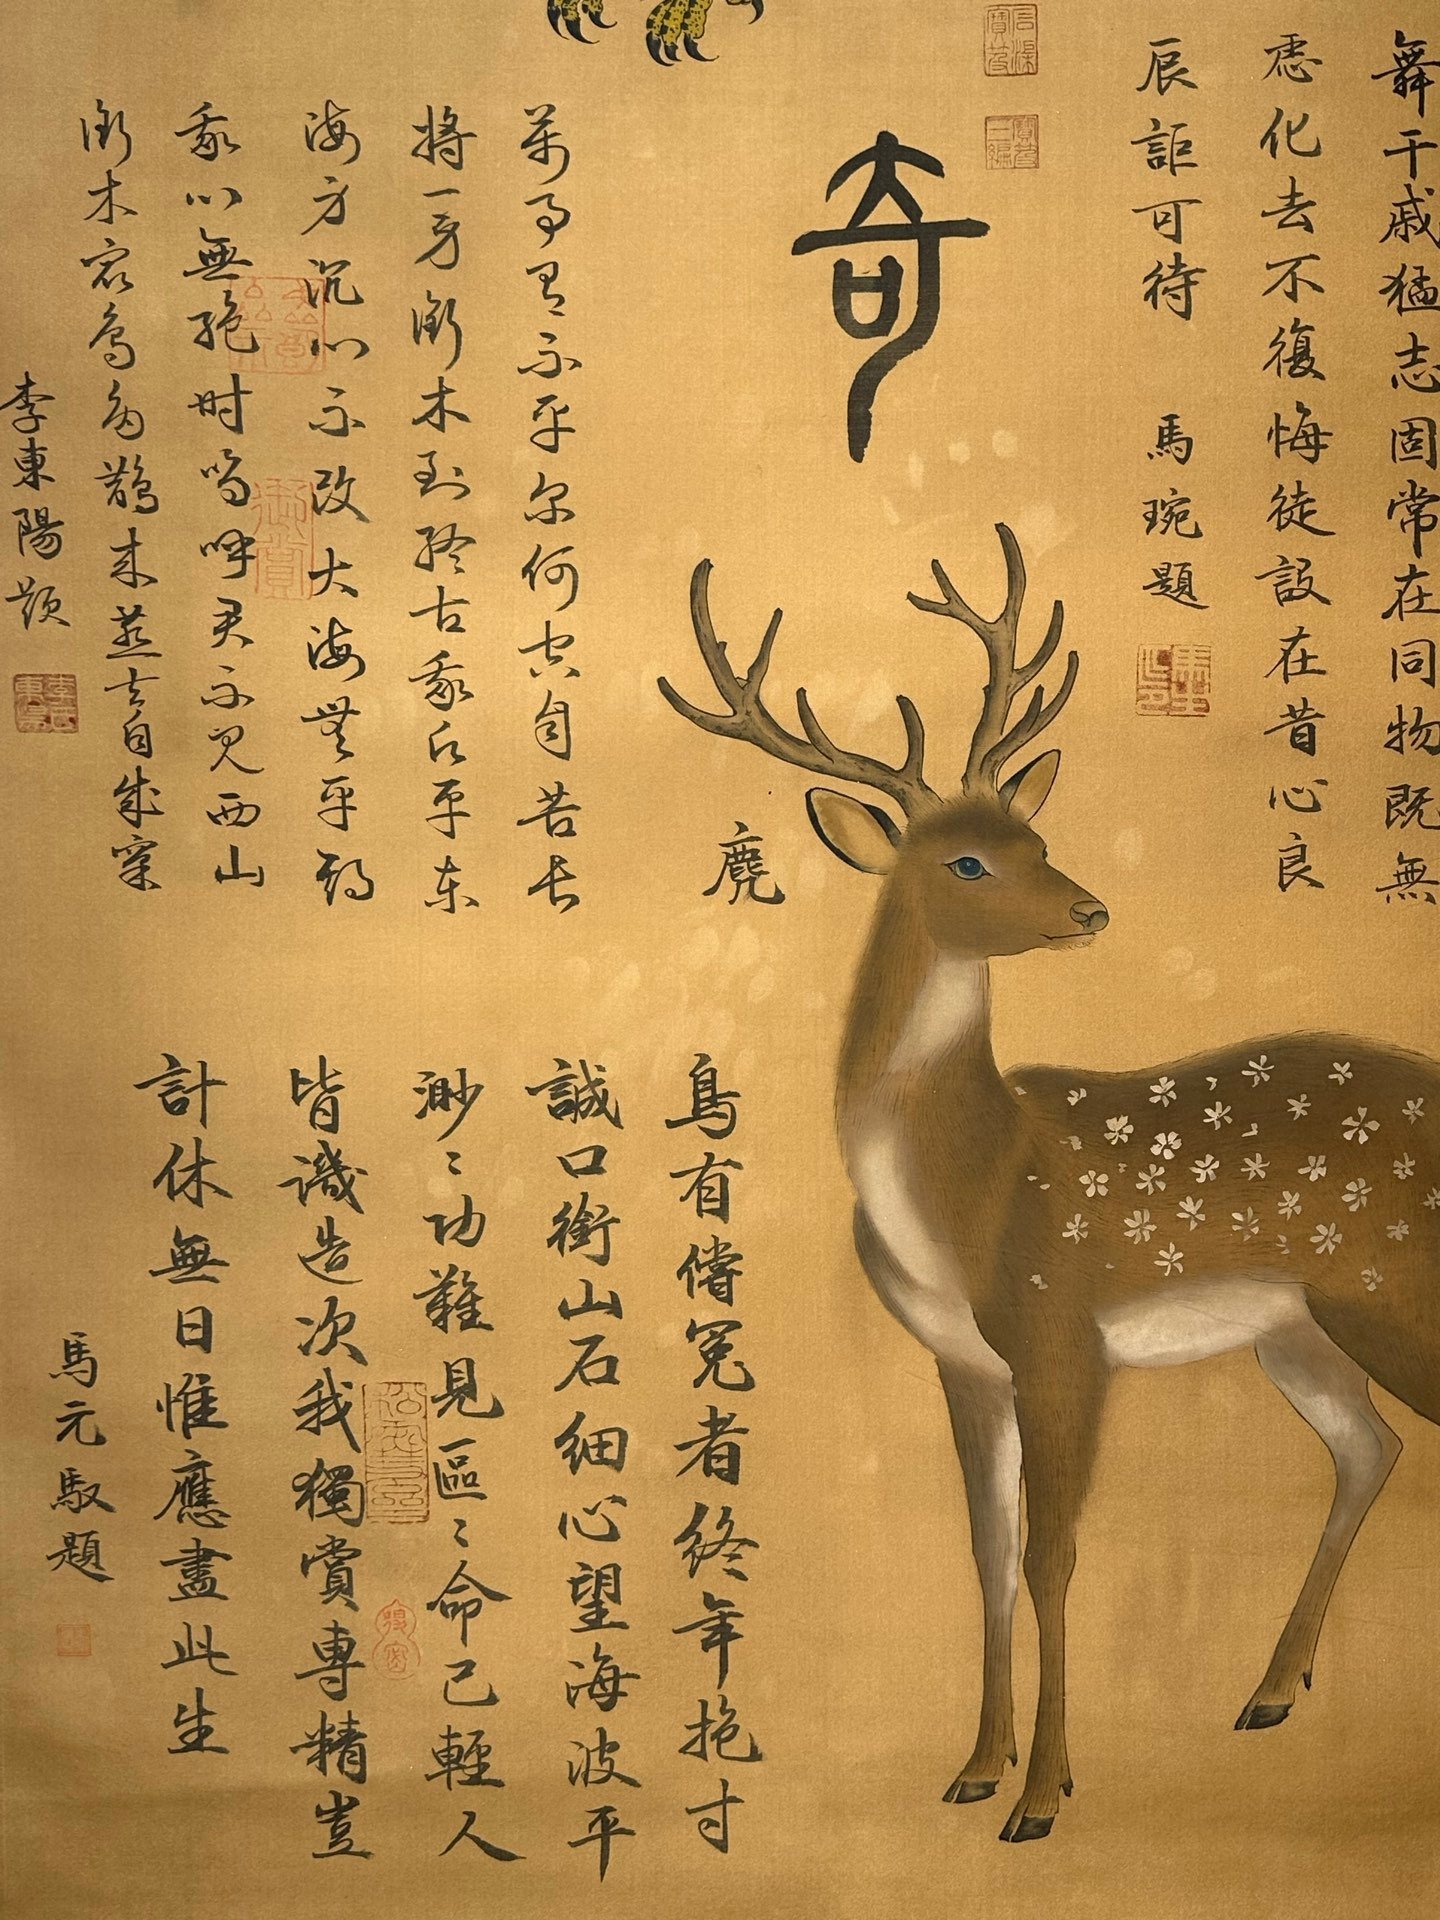 舞干戚猛志固常在同物既無
慮化去不復悔徒設在昔心良
辰詎可待
馬琬題
奇
麃
萬事有不平尔何空自苦長
將一身銜木到終古我願平东
海身沉心不改大海無平期
我心無絕时嗚呼君不見西山
銜木众鳥多鵲来燕去自成窠
李東陽題
鳥有償冤者終年抱寸
誠口銜山石細心望海波平
渺〻功難見區〻命已輕人
皆譏造次我獨賞專精豈
計休無日惟應盡此生
馬元馭題